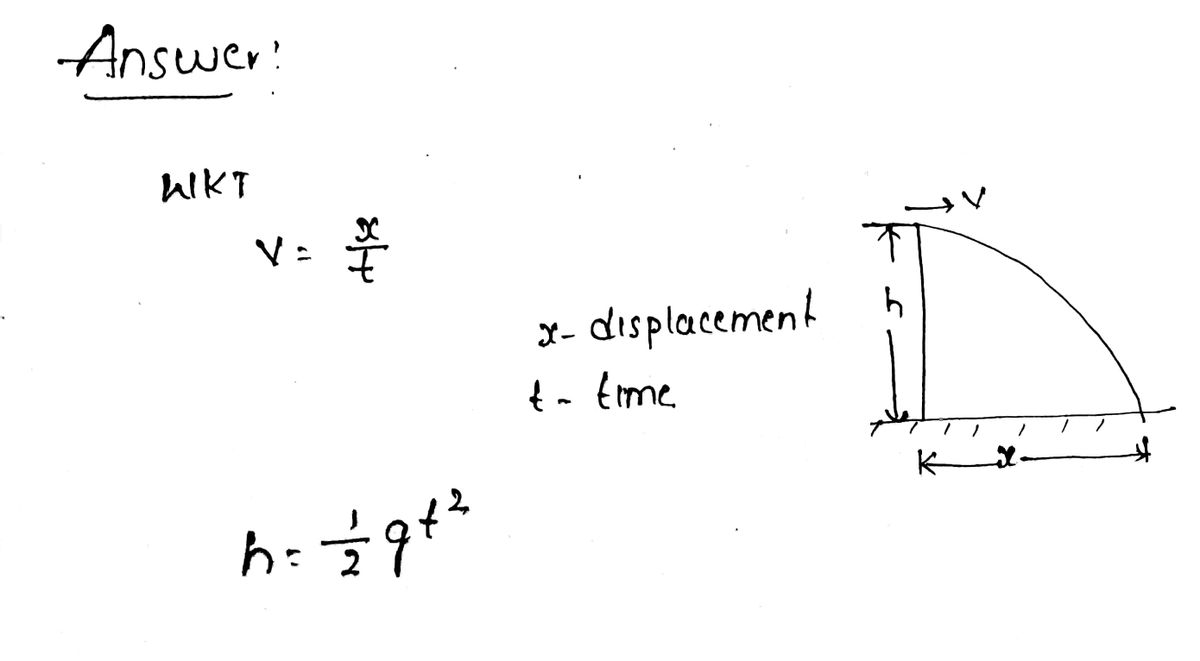 Answer:
WKT
V = x/t
x - displacement
t - time
h = 1/2 gt²
→ V
h
x